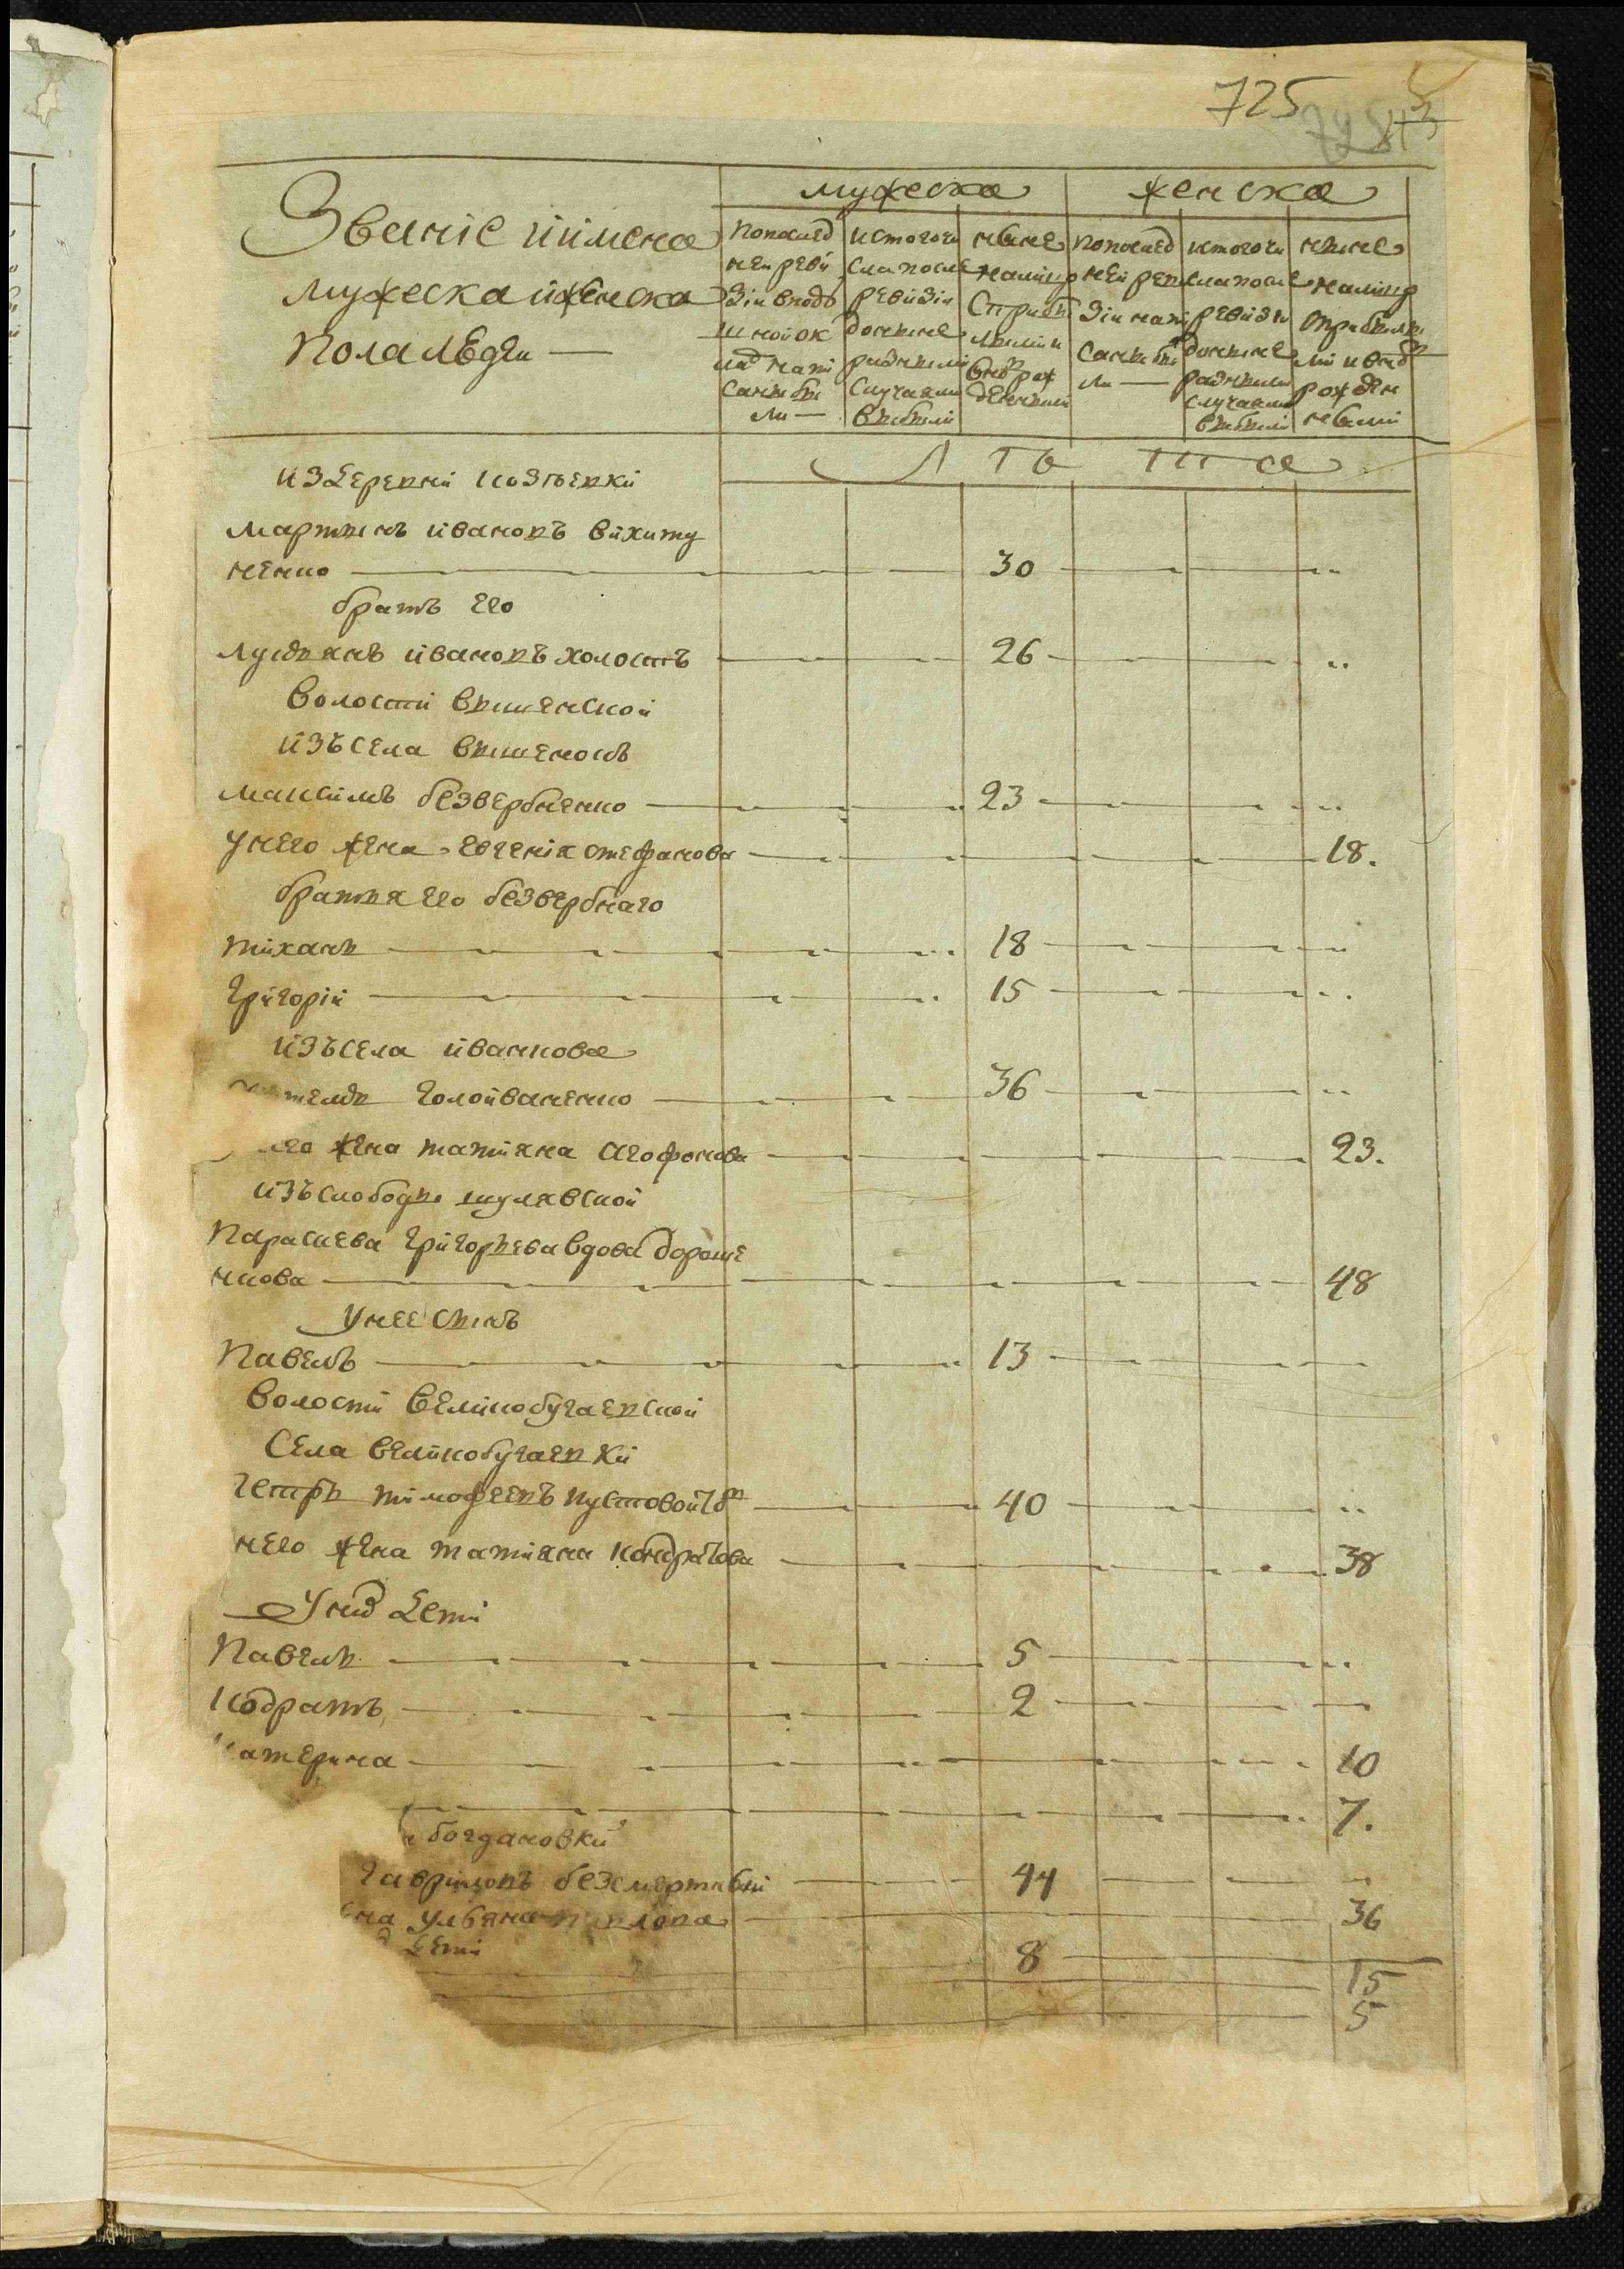 725
Званіе иимена
мужеска иженска
пола людеи —
мужеска
женска
попослед
неи реви
зіи вподу
шной ок
лад напи
саны бы
ли —
истогочи
сла после
ревизіи
доныне
разными
случаями
выбыли
ныне
налицо
спрыбы
лыми и
вновь рож
денными
попослед
ней реви
зіи напи
саны бы
ли —
истогочи
сла после
ревизіи
доныне
разными
случаями
выбыли
ныне
налицо
сприбылы
ми и внов
рожден
ными
лѣта
издеревни козѣевки
мартынъ ивановъ
ненко 30 ..
братъ его
лукьянъ ивановъ холостъ 26 ..
волости вышенской
изъ села вышенокъ
максимъ безвербненко 23 ..
унего жена евгенія стефанова 18.
братья его безвербнаго
тиханъ 18 ..
григорій 15 ..
изъ села иванкова
голоиваненко 36 ..
его жена татияна агофонова 23.
изъ слободы шулявской
параскева григорьева вдова дороше
нкова 48
унее сынъ
павелъ 13
волости великобугаевской
села великобугаевки
петръ тимофеевъ пустовойт 40 ..
него жена татияна кондратова 38
уних дети
павелъ 5 ..
кодратъ 2
катерина 10
7.
богдановки
гавриловъ безсмертный 44 ..
жена ульяна 36
дети 8
15
5